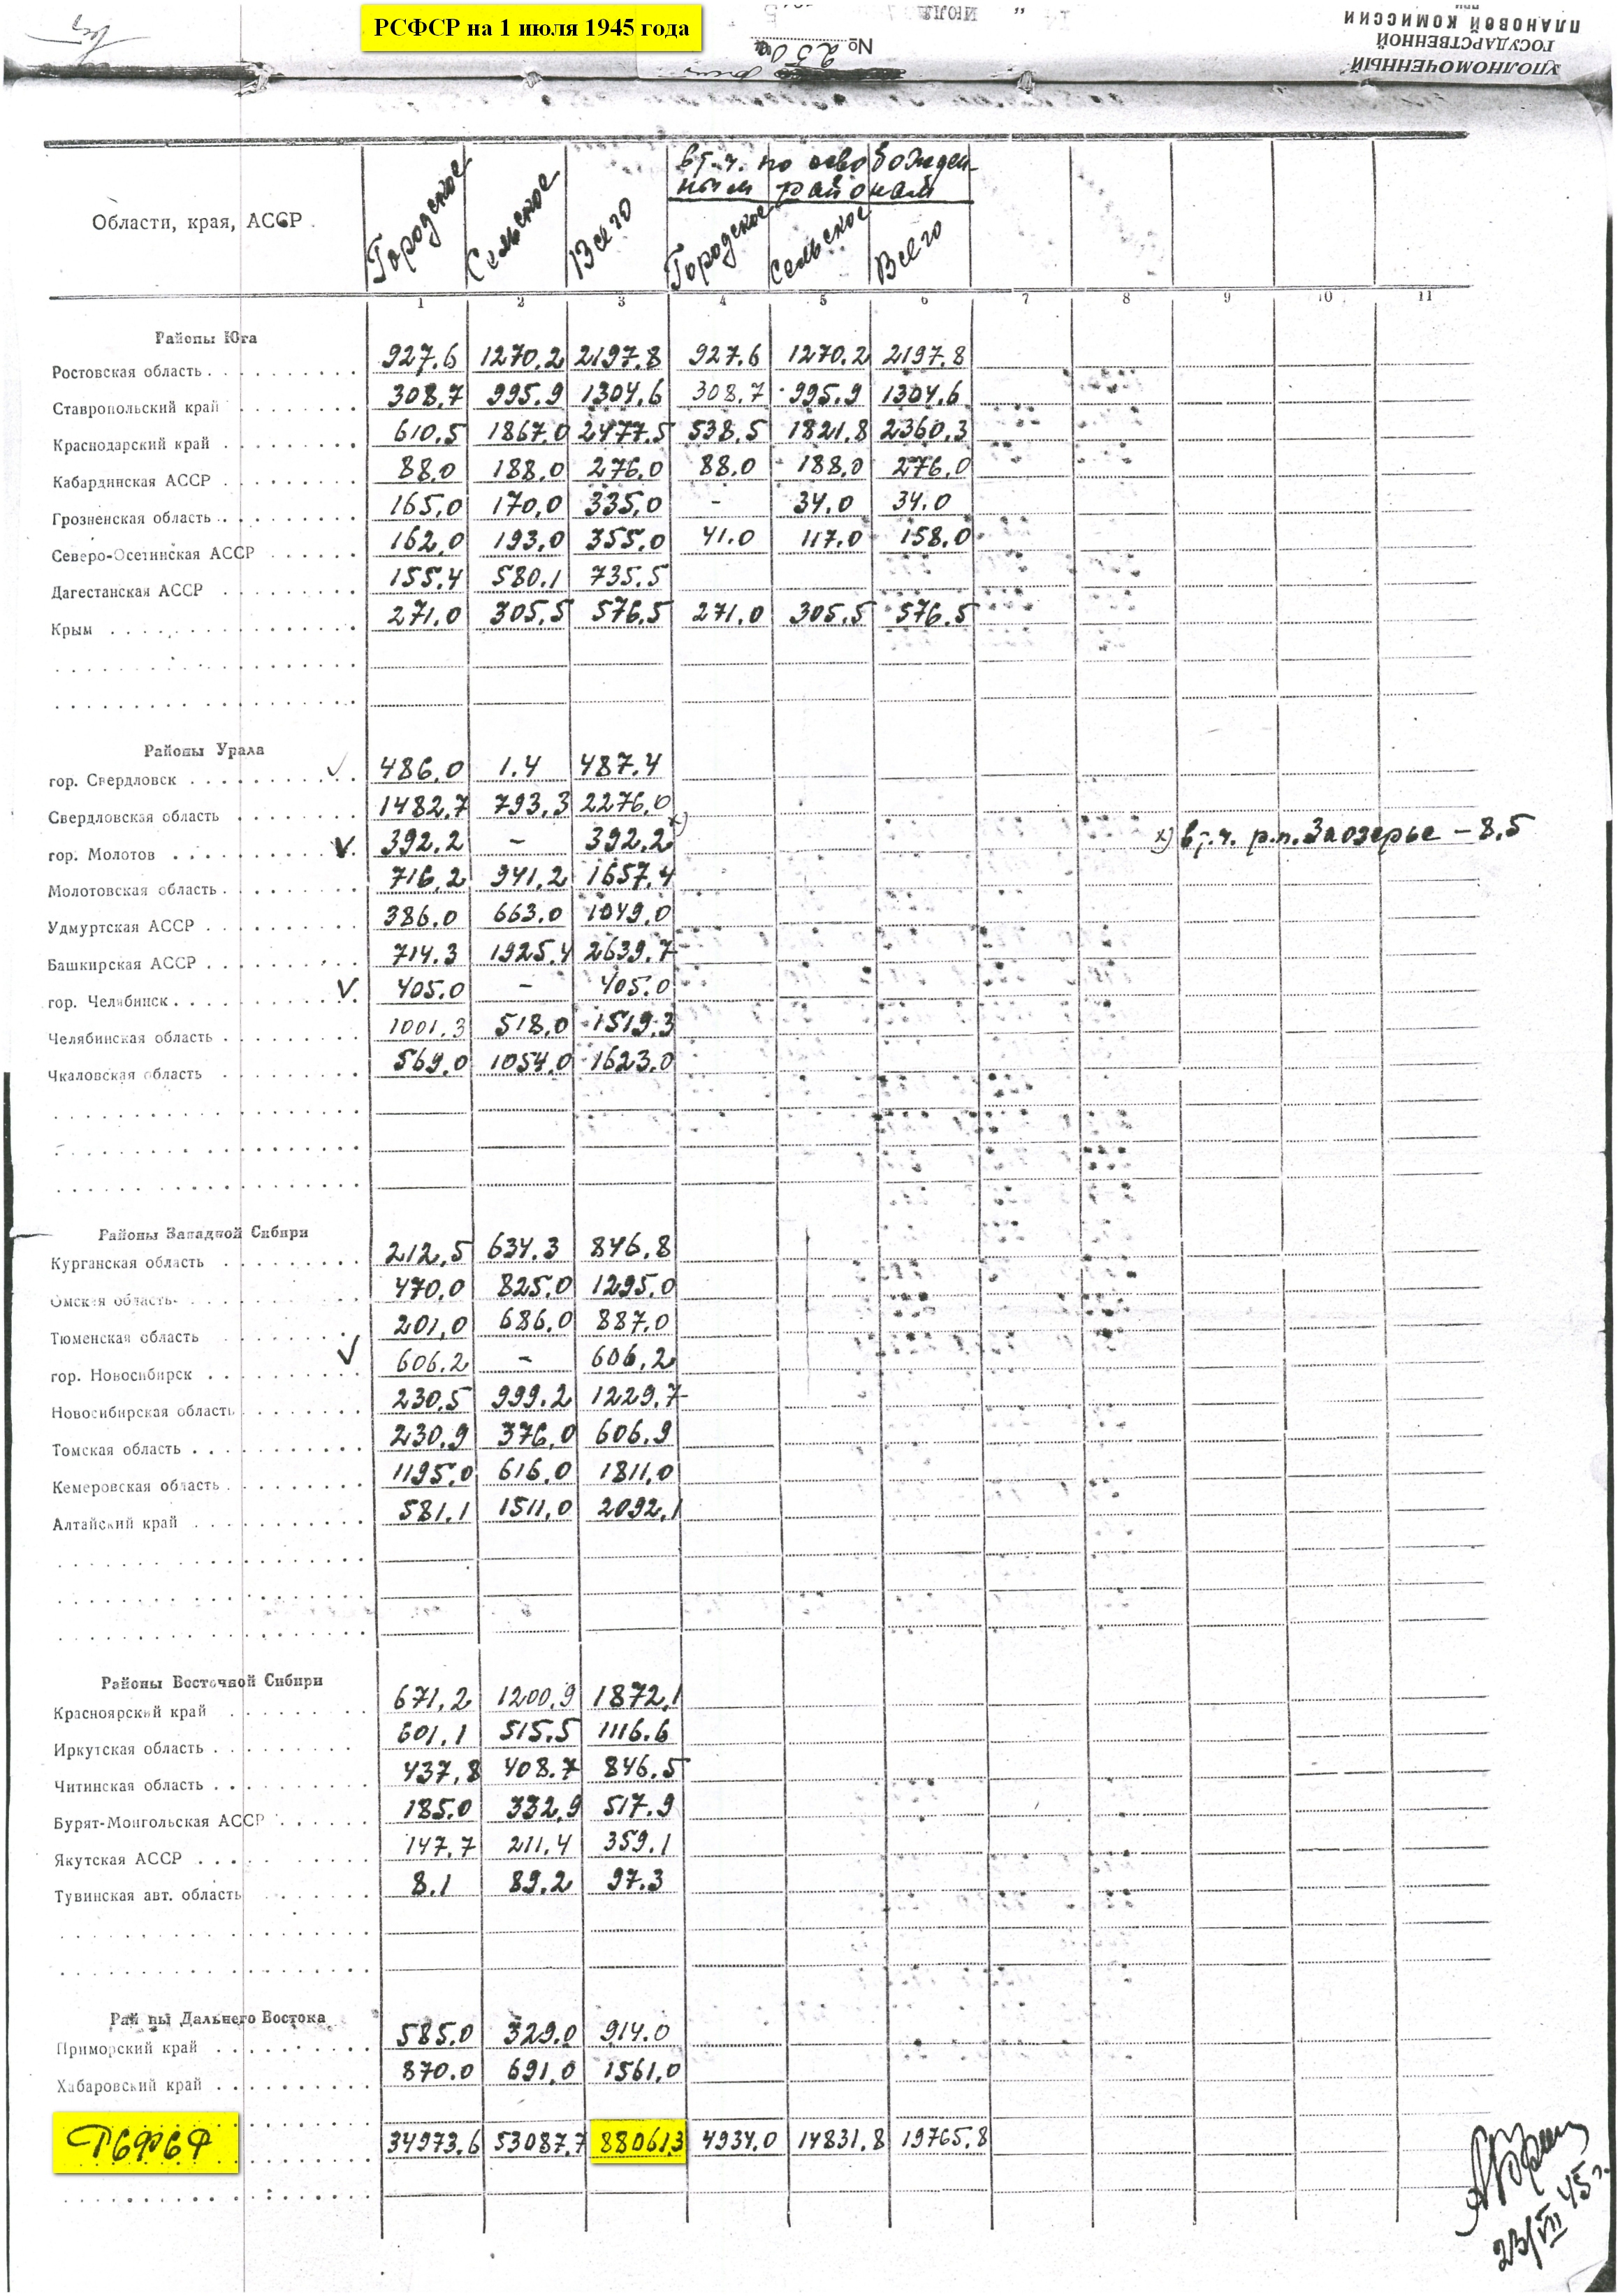 РСФСР на 1 июля 1945 года
июля "
№ 250
УПОЛНОМОЧЕННЫЙ
ГОСУДАРСТВЕННОЙ
ПЛАНОВОЙ КОМИССИИ
при
Области, края, АССР Городское Сельское Всего в т.ч. по освобожден-
ным районам
Городское Сельское Всего
1 2 3 4 5 6 7 8 9 10 11
Районы Юга
Ростовская область 927.6 1270.2 2197.8 927.6 1270.2 2197.8
Ставропольский край 308,7 995.9 1304,6 308,7 995,9 1304,6
Краснодарский край 610,5 1867,0 2477,5 538,5 1821,8 2360,3
Кабардинская АССР 88,0 188,0 276,0 88,0 188,0 276,0
Грозненская область 165,0 170,0 335,0 - 34.0 34.0
Северо-Осетинская АССР 162,0 193,0 355,0 41.0 117.0 158.0
Дагестанская АССР 155.4 580.1 735.5
Крым 271,0 305,5 576,5 271,0 305,5 576,5
Районы Урала
гор. Свердловск 486,0 1.4 487.4
Свердловская область 1482,7 793,3 2276,0
гор. Молотов 392.2 - 392.2 х) х) в т.ч. р.п. Заозерье - 8.5
Молотовская область 716,2 941,2 1657,4
Удмуртская АССР 386,0 663,0 1049,0
Башкирская АССР 714.3 1925.4 2639.7
гор. Челябинск 405.0 - 405.0
Челябинская область 1001,3 518,0 1519,3
Чкаловская область 569,0 1054,0 1623,0
Районы Западной Сибири
Курганская область 212,5 634.3 846,8
Омская область 470,0 825,0 1295,0
Тюменская область 201,0 686,0 887,0
гор. Новосибирск 606.2 - 606,2
Новосибирская область 230.5 999.2 1229.7
Томская область 230.9 376,0 606,9
Кемеровская область 1195,0 616,0 1811,0
Алтайский край 581,1 1511,0 2092,1
Районы Восточной Сибири
Красноярский край 671,2 1200,9 1872,1
Иркутская область 601,1 515.5 1116.6
Читинская область 437,8 408.7 846.5
Бурят-Монгольская АССР 185.0 332,9 517.9
Якутская АССР 147,7 211,4 359,1
Тувинская авт. область 8.1 89.2 97.3
Рай ны Дальнего Востока
Приморский край 585.0 329.0 914.0
Хабаровский край 870.0 691,0 1561,0
РСФСР 34973,6 53087,7 88061,3 4934,0 14831,8 19765,8
23/VII 45 г.